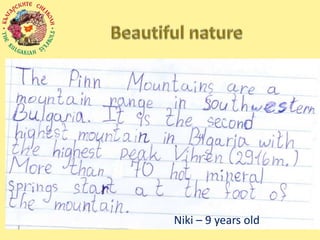 БЪЛГАРСКИТЕ СИМВОЛИ
THE BULGARIAN SYMBOLS
Beautiful nature
The Pinn Mountains are a
mountain range in southwestern
Bulgaria. It is the second
highest mountain in Blgaria with
the highest peak Vihren (2916m.)
More than 70 hot mineral
springs start at the foot of
the mountain.
Niki – 9 years old